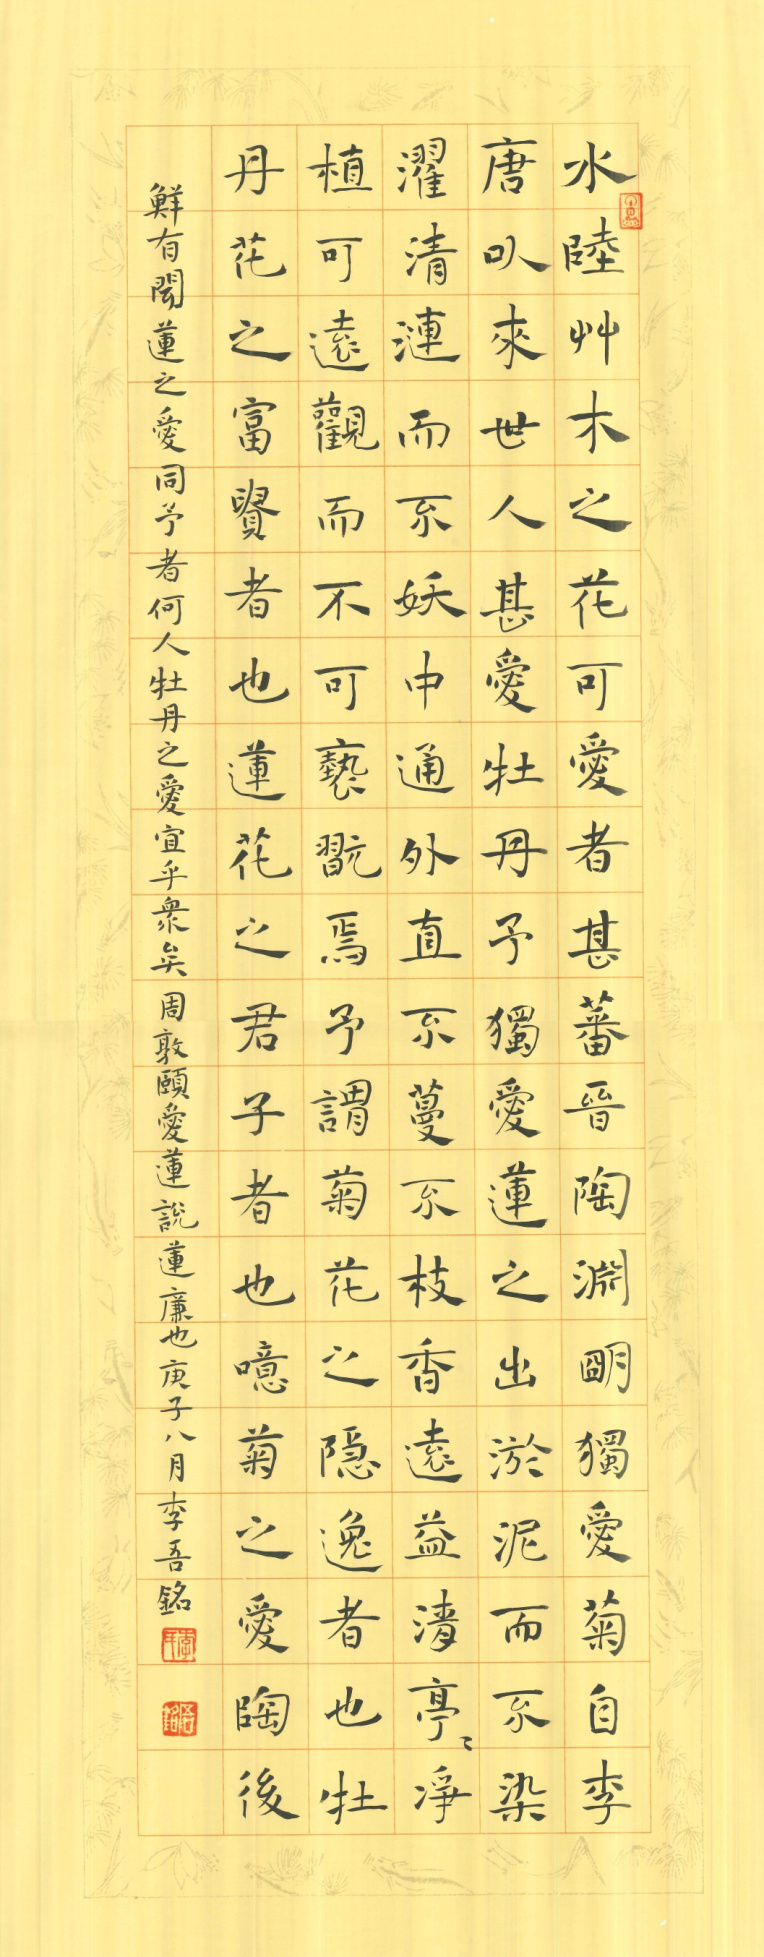 水陸艸木之花可愛者甚蕃晉陶淵朙獨愛菊自李
唐㕥來世人甚愛牡丹予獨愛蓮之出淤泥而不染
濯清漣而不妖中通外直不蔓不枝香遠益清亭〻凈
植可遠觀而不可褻翫焉予謂菊花之隱逸者也牡
丹花之富貴者也蓮花之君子者也噫菊之愛陶後
鮮有聞蓮之愛同予者何人牡丹之愛宜乎衆矣 周敦頤愛蓮說 蓮廉也 庚子八月 李吾銘